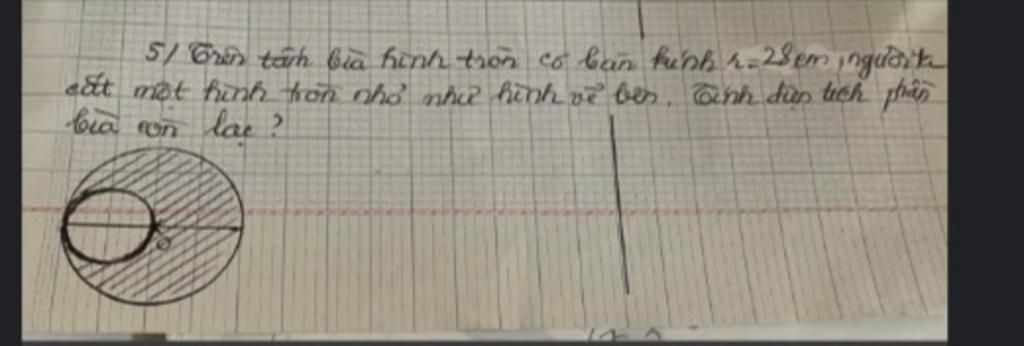 5/ Trên tấm bìa hình tròn có bán kính r=28cm, người ta
cắt một hình tròn nhỏ như hình vẽ bên. Tính diện tích phần
bìa còn lại?
O